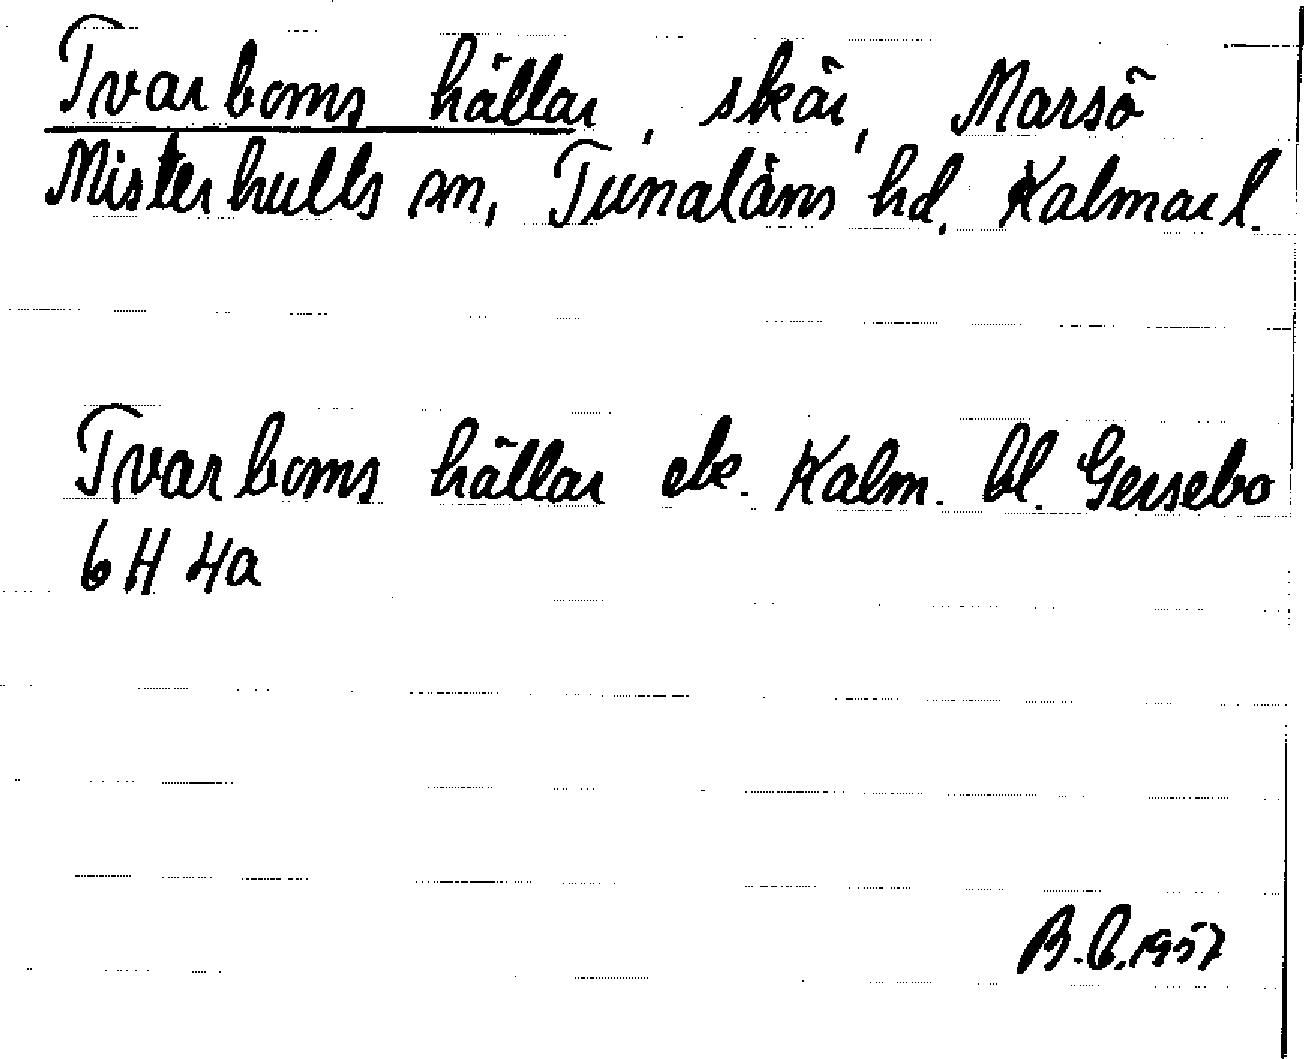 Tvarboms hällar, skär, Marsö
Misterhults sn, Tunaläns hd. Kalmar l.
Tvarboms hällar ek. Kalm. bl. Gersebo
6 H 4a
B.C. 1957